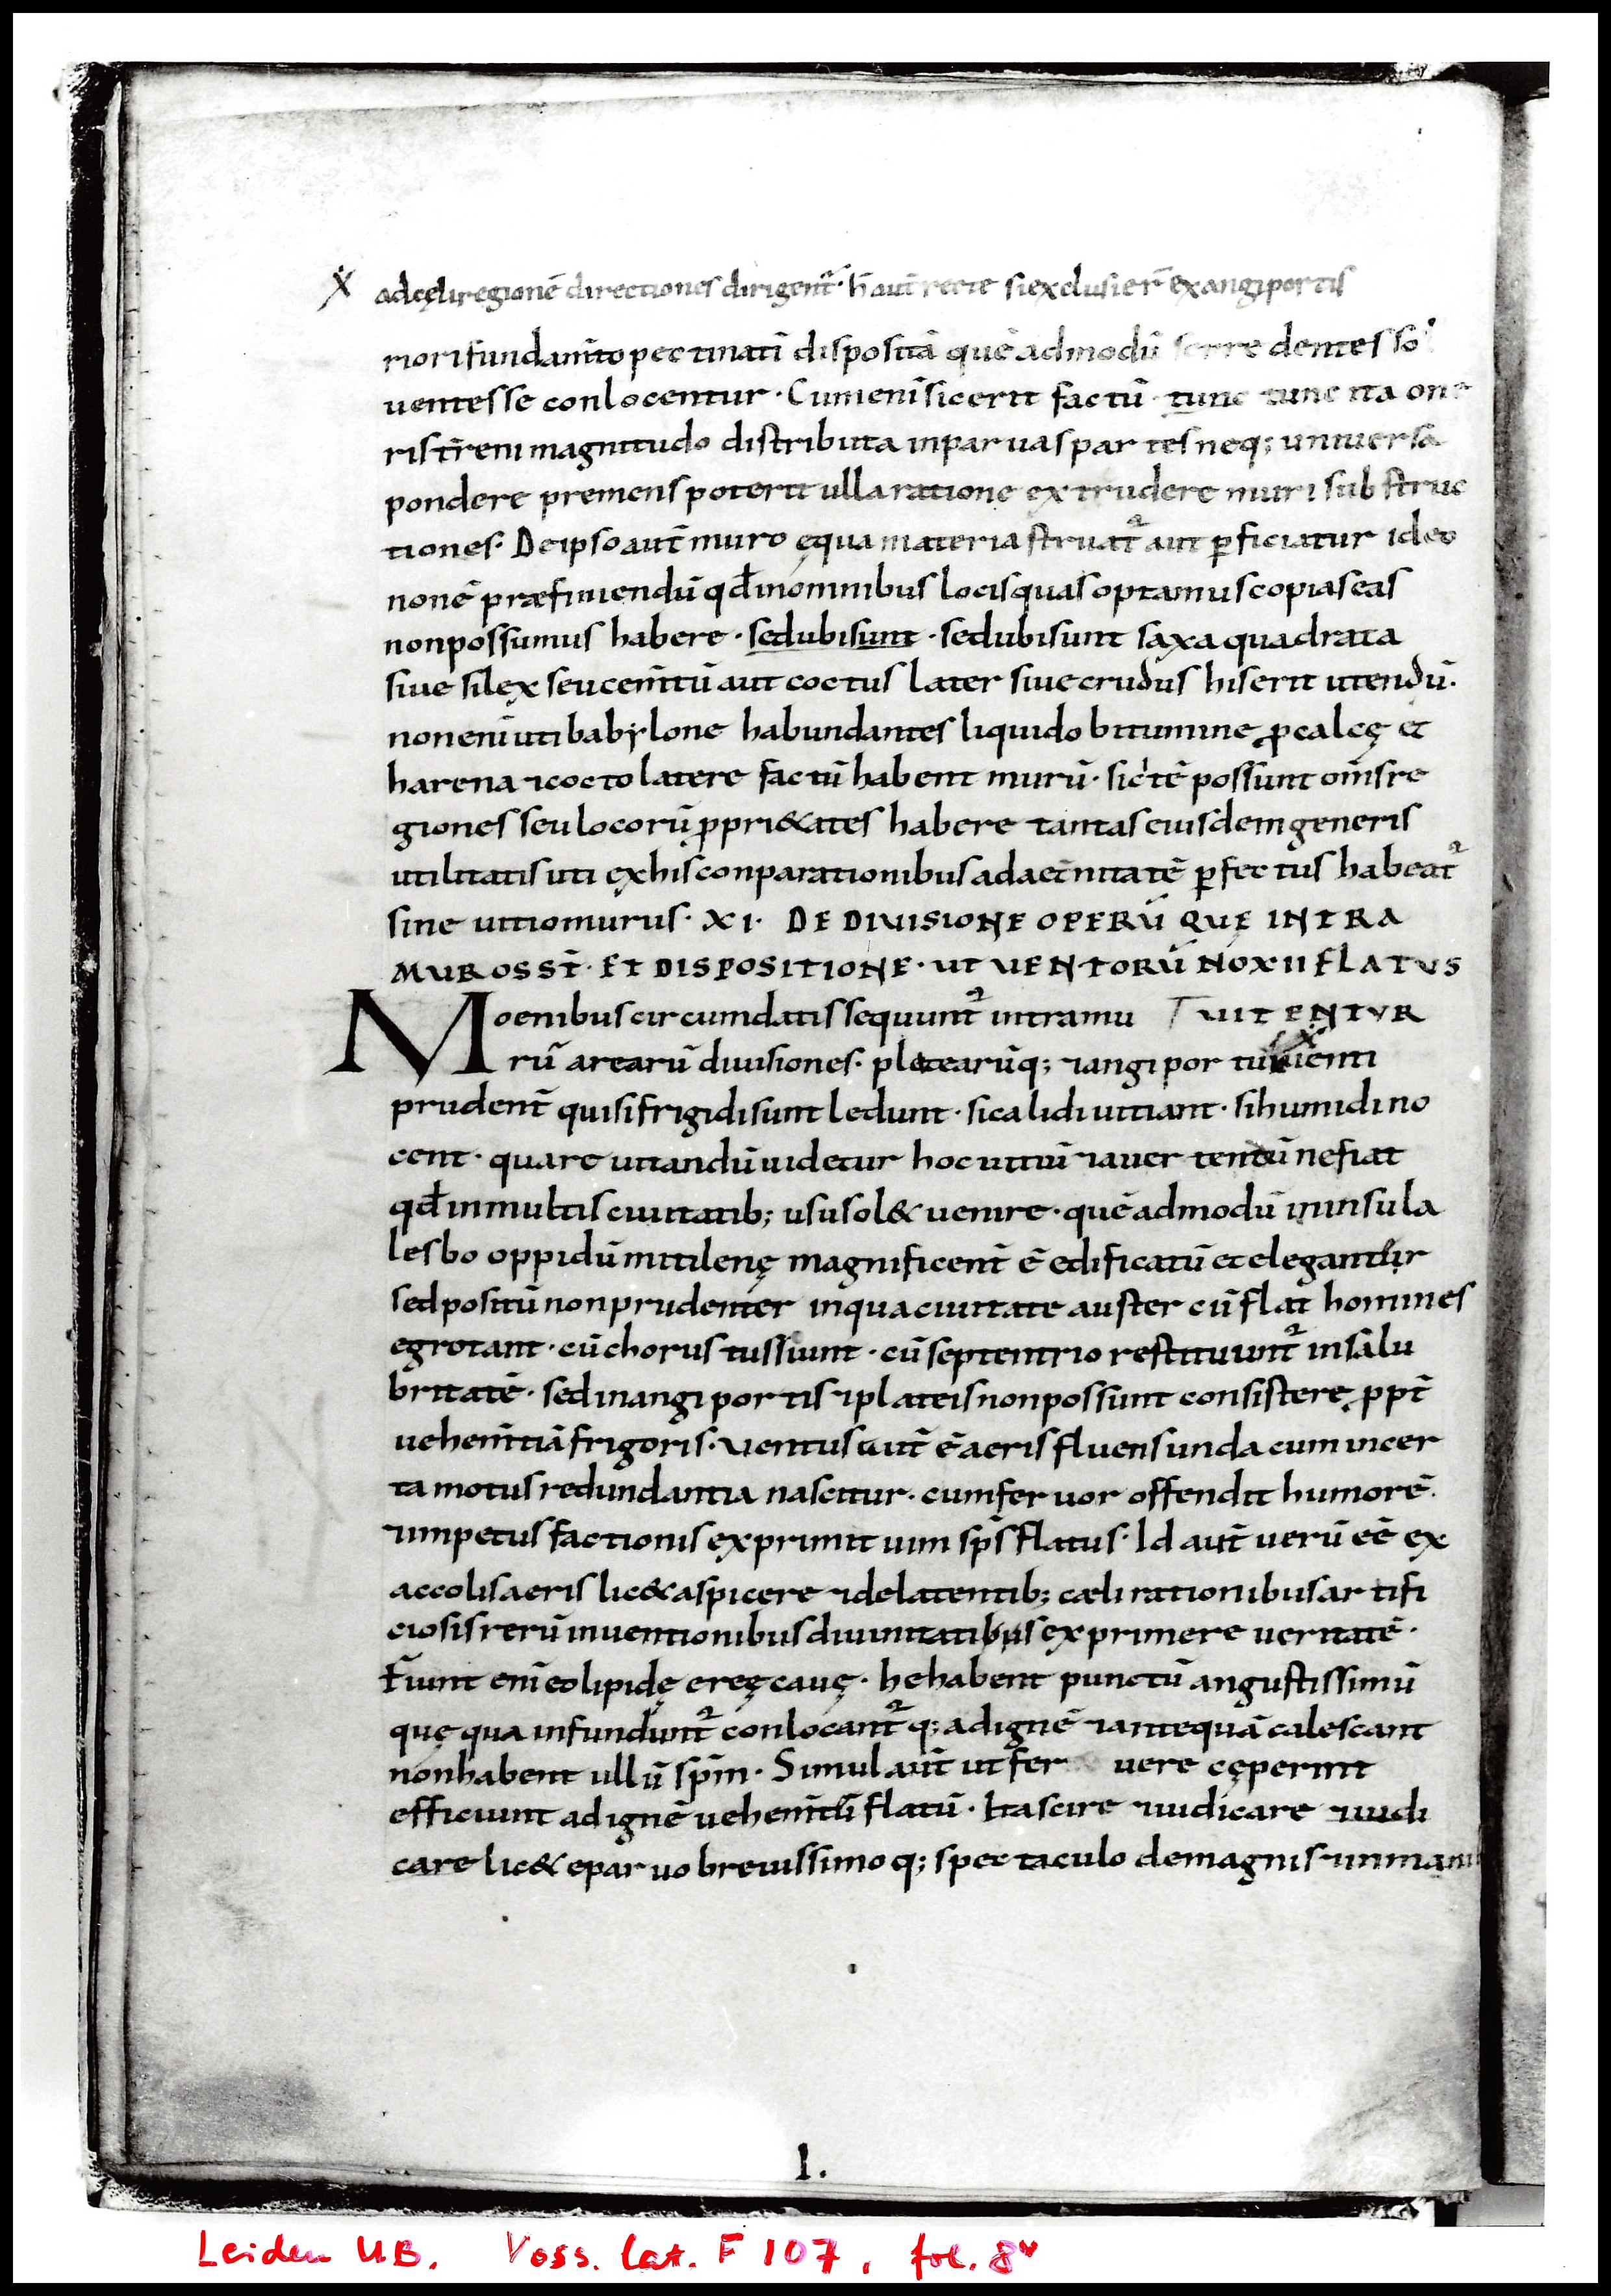 X adcęliregionē directiones dirigent᷑· h̄ aut̄ recte siexclusier̄ exangiportis
riorifundam̄topectinatī dispositā quēadmodū serre dentes so
uentesse conlocentur· Cumenīsicerit factū tunc tunc ita one
rist̄reni magnitudo distributa inparuas partes neq; uniuersa
pondere premens poterit ulla ratione extrudere muri substruc
tiones· Deipsoaut̄ muro ęqua materia struat᷑ aut ꝑficiatur ideo
nonē præfiniendū qđinomnibus locisquasoptamuscopiaseas
nonpossumus habere· sedubisunt· sedubisunt saxaquadrata
siue silex seucem̄tū aut coctus later siuecrudus hiserit utendū·
nonenīutibabylone habundantes liquidobitumine ꝓcalcę et
harena ⁊coctolatere factū habent murū· sic'tē possunt om̄sre
giones seulocorū ꝓpri&ates habere tantaseiusdemgeneris
utilitatisuti exhisconparationibus adaet̄nitatē ꝑfectus habeat᷑
sine uitiomurus· XI· DE DIUISIONE OPERŪ QUĘ INTRA
MUROSST̄· ET DISPOSITIONE· UT UENTORŪ NOXII FLATUS
Moenibuscircumdatis sequunt᷑ intramu UITENTUR
rū arearū diuisiones· plateárūq; ⁊angiportuū uenti
prudent̄ quisifrigidisunt ledunt· sicalidi uitiant· sihumidino
cent· quare uitandū uidetur hoc uitiū ⁊auertendū nefiat
qđinmultisciuitatib; ususol& uenire· quēadmodū ininsula
lesbo oppidū mitilenę magnificent̄ ē edificatū etelegant̄r
sedpositū nonprudenter inquaciuitate auster cūflat homines
egrotant· cūchorus tussiunt· cūseptentrio restituunt᷑ insalu
britatē· sedinangiportis ⁊plateisnonpossunt consistere ꝓpt̄
uehem̄tiā frigoris· uentusaut̄ ēaerisfluensunda cumincer
tamotusredundantia nascitur· cumferuor offendit humorē·
⁊impetus factionis exprimit uim sp̄s flatus· Id aut̄ uerū eē ex
accolisaeris lic&aspicere ⁊delatentib; cæli rationibusartifi
ciosisrerū inuentionibusdiuinitatibus exprimere ueritatē·
Fiunt enī eolipidę ereęcauę· hehabent punctū angustissimū
quę qua infundunt᷑ conlocant᷑ q; adignē ⁊antequā calescant
nonhabent ullū sp̄m· Simul aut̄ ut fer uere cęperint
efficiunt adignē uehem̄tī flatū· Itascire ⁊iudicare ⁊iudi
care lic& eparuobreuissimoq; spectaculo demagnis⁊inmani
1.
Leiden UB. Voss. lat. F 107, fol. 8v